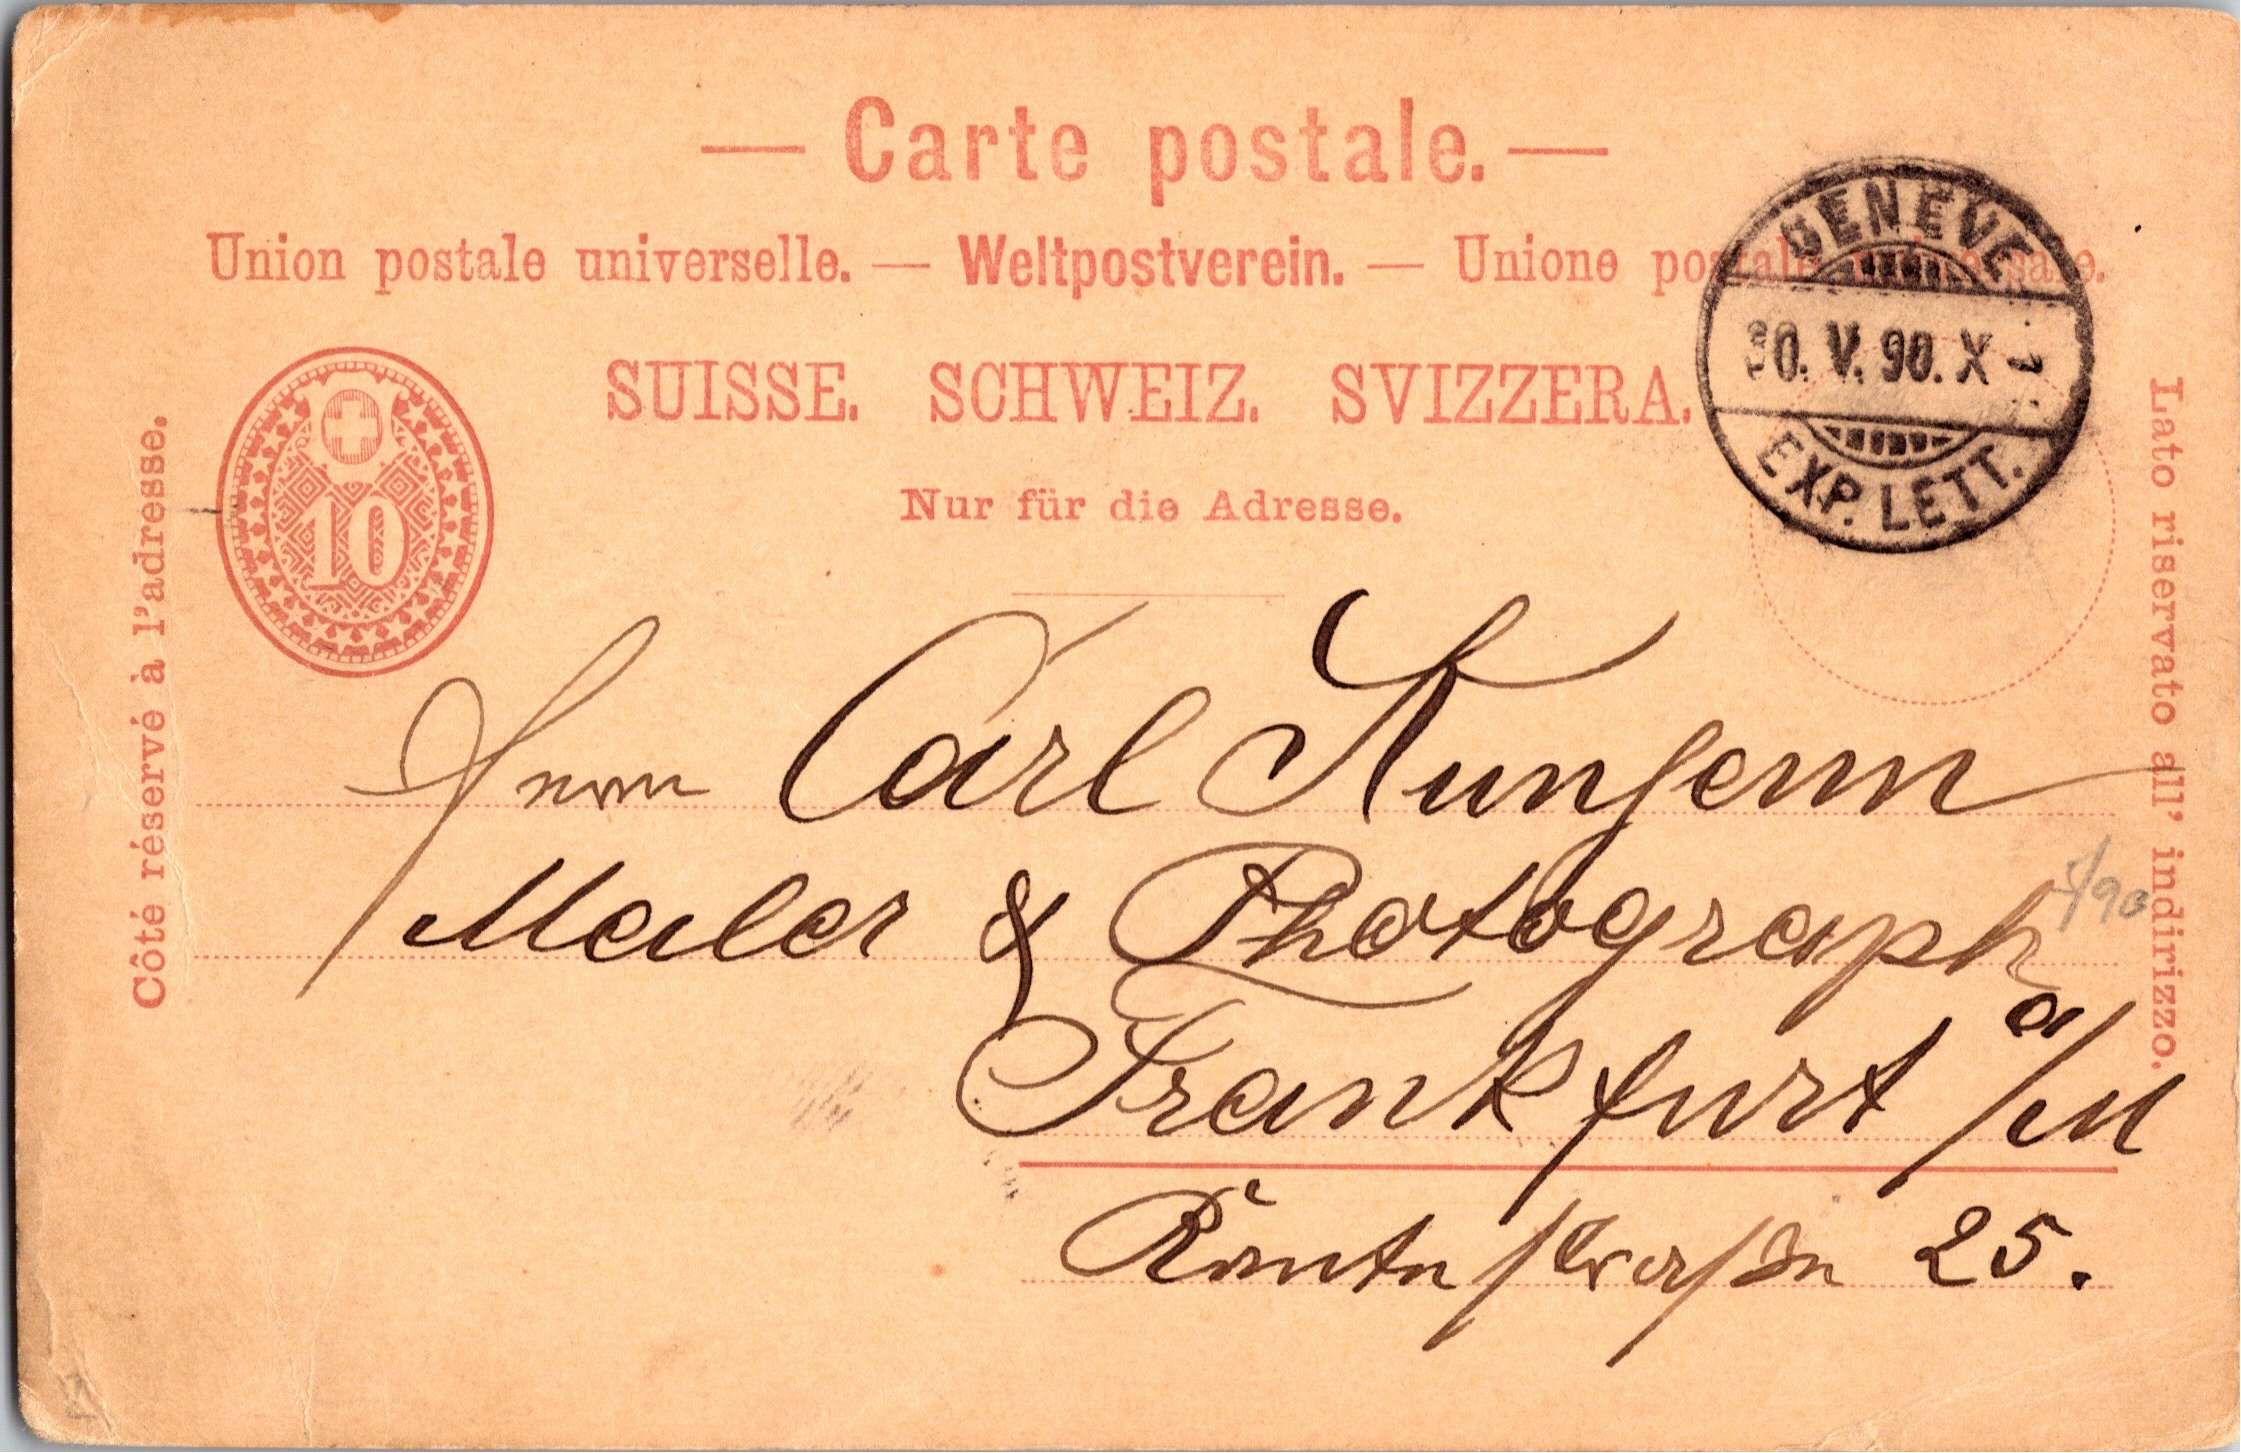 — Carte postale. —
Union postale universelle. — Weltpostverein. — Unione postale universale.
SUISSE. SCHWEIZ. SVIZZERA.
Nur für die Adresse.
Côté réservé à l'adresse.
Lato riservato all' indirizzo.
10
GENÈVE
30. V. 90. X
EXP. LETT.
Herrn Carl
Maler & Photograph
Frankfurt a/M
25.
/90